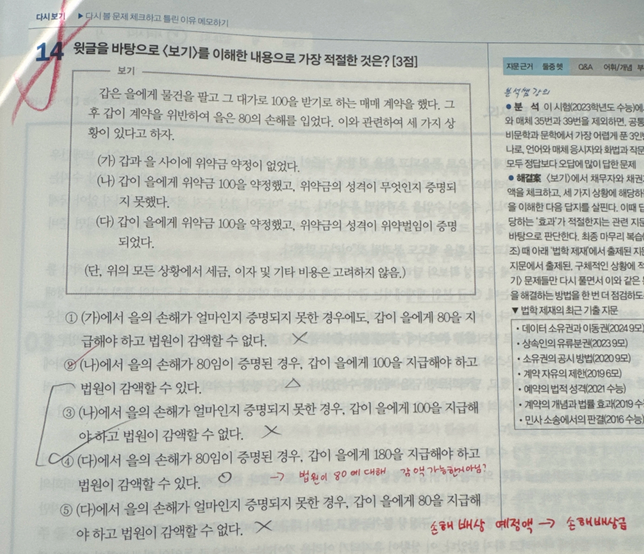 다시보기 ▶ 다시 볼 문제 체크하고 틀린 이유 메모하기
14 윗글을 바탕으로 <보기>를 이해한 내용으로 가장 적절한 것은? [3점]
보기
갑은 을에게 물건을 팔고 그 대가로 100을 받기로 하는 매매 계약을 했다. 그
후 갑이 계약을 위반하여 을은 80의 손해를 입었다. 이와 관련하여 세 가지 상
황이 있다고 하자.
(가) 갑과 을 사이에 위약금 약정이 없었다.
(나) 갑이 을에게 위약금 100을 약정했고, 위약금의 성격이 무엇인지 증명되
지 못했다.
(다) 갑이 을에게 위약금 100을 약정했고, 위약금의 성격이 위약벌임이 증명
되었다.
(단, 위의 모든 상황에서 세금, 이자 및 기타 비용은 고려하지 않음.)
① (가)에서 을의 손해가 얼마인지 증명되지 못한 경우에도, 갑이 을에게 80을 지
급해야 하고 법원이 감액할 수 없다.
② (나)에서 을의 손해가 80임이 증명된 경우, 갑이 을에게 100을 지급해야 하고
법원이 감액할 수 있다.
③ (나)에서 을의 손해가 얼마인지 증명되지 못한 경우, 갑이 을에게 100을 지급해
야 하고 법원이 감액할 수 없다.
④ (다)에서 을의 손해가 80임이 증명된 경우, 갑이 을에게 180을 지급해야 하고
법원이 감액할 수 있다. → 법원이 80에 대해 감액 가능한거아님?
⑤ (다)에서 을의 손해가 얼마인지 증명되지 못한 경우, 갑이 을에게 80을 지급해
야 하고 법원이 감액할 수 없다.
손해 배상 예정액 → 손해배상금
지문 근거 둘중 헷 Q&A 어휘/개념 부
분석쌤 강의
● 분 석 이 시험(2023학년도 수능)에
와 매체 35번과 39번을 제외하면, 공통
비문학과 문학에서 가장 어렵게 푼 3인
나로, 언어와 매체 응시자와 화법과 작문
모두 정답보다 오답에 많이 답한 문제
● 해결案 <보기>에서 채무자와 채권
액을 체크하고, 세 가지 상황에 해당하
을 이해한 다음 답지를 살핀다. 이때 답
당하는 '효과'가 적절한지는 관련 지문
바탕으로 판단한다. 최종 마무리 복습
조) 때 아래 '법학 제재'에서 출제된 지문
지문에서 출제된, 구체적인 상황에 적
기) 문제들만 다시 풀면서 이와 같은
을 해결하는 방법을 한 번 더 점검하도
▼ 법학 제재의 최근 기출 지문
• 데이터 소유권과 이동권(2024 9모)
• 상속인의 유류분권(2023 9모)
• 소유권의 공시 방법(2020 9모)
• 계약 자유의 제한(2019 6모)
• 예약의 법적 성격(2021 수능)
• 계약의 개념과 법률 효과(2019 수
• 민사 소송에서의 판결(2016 수능)